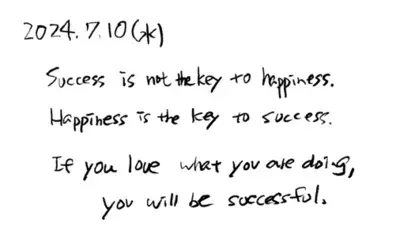 2024.7.10(水)
Success is not the key to happiness.
Happiness is the key to success.
If you love what you are doing,
you will be successful.